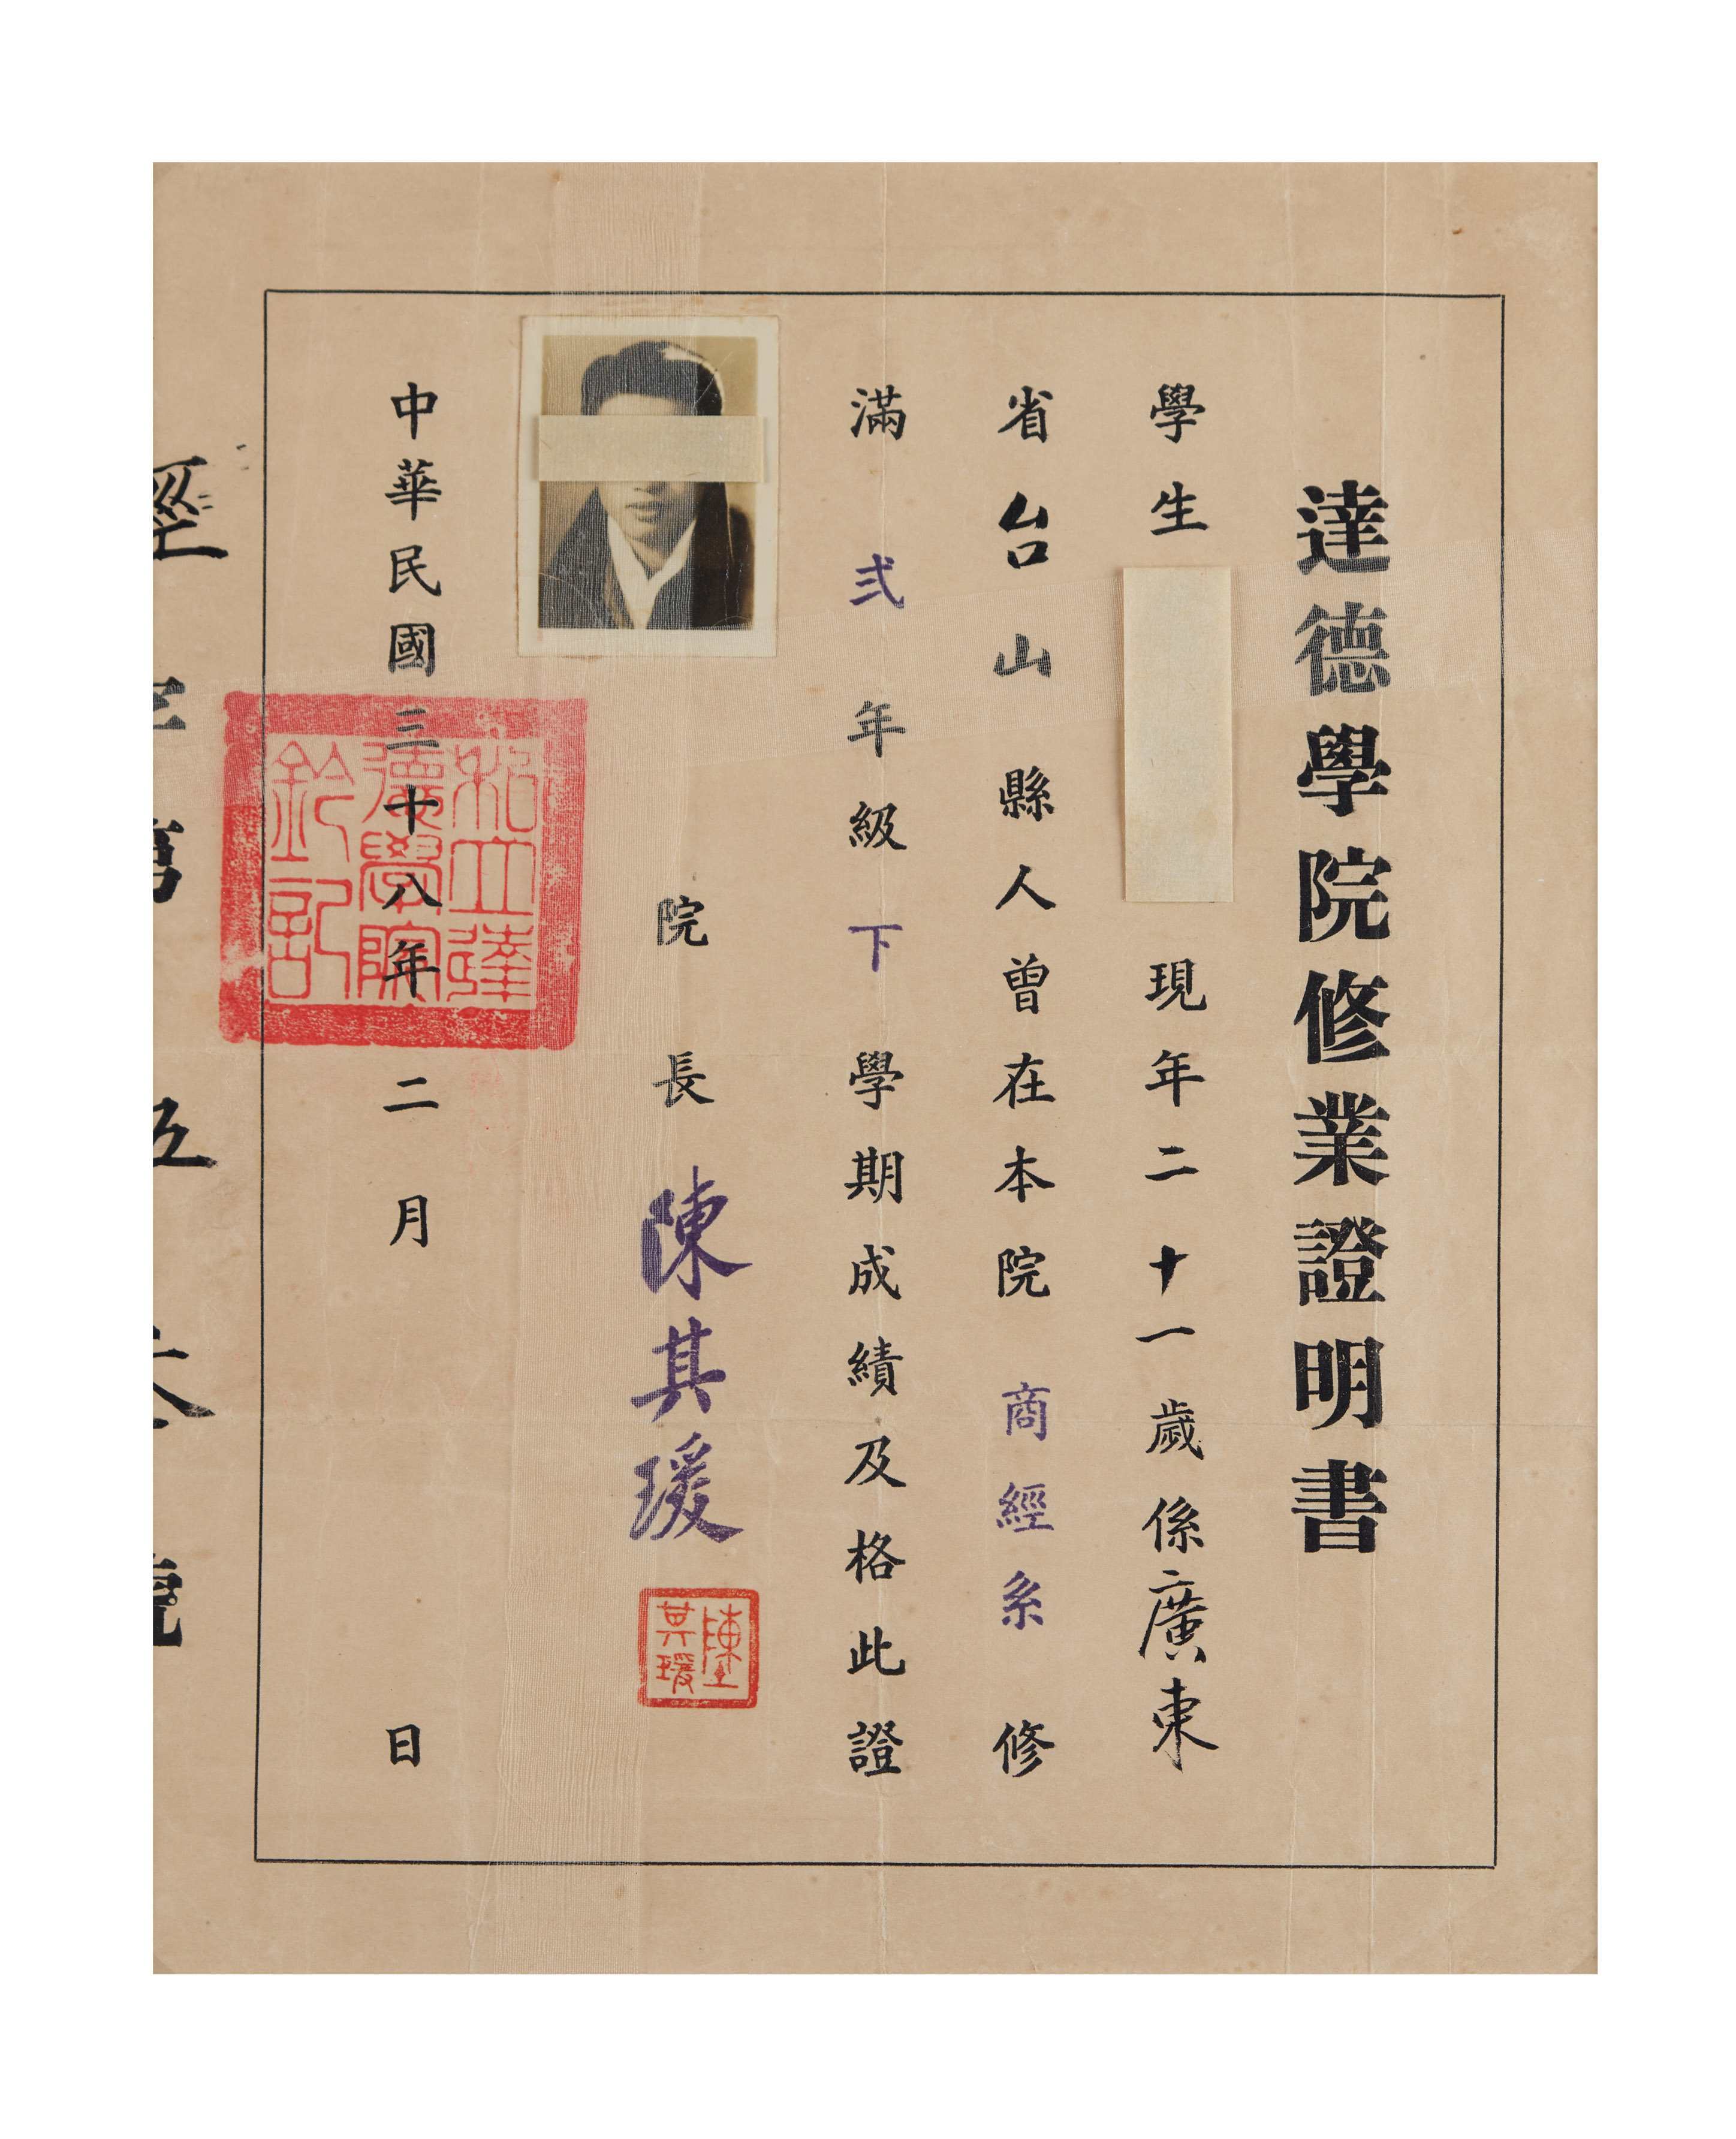 達德學院修業證明書
學生 現年二十一歲係廣東
省台山縣人曾在本院商經系修
滿弍年級下學期成績及格此證
院長陳其瑗
陳其瑗
中華民國三十八年二月 日
私立達德學院鈐記
經字第 伍 號